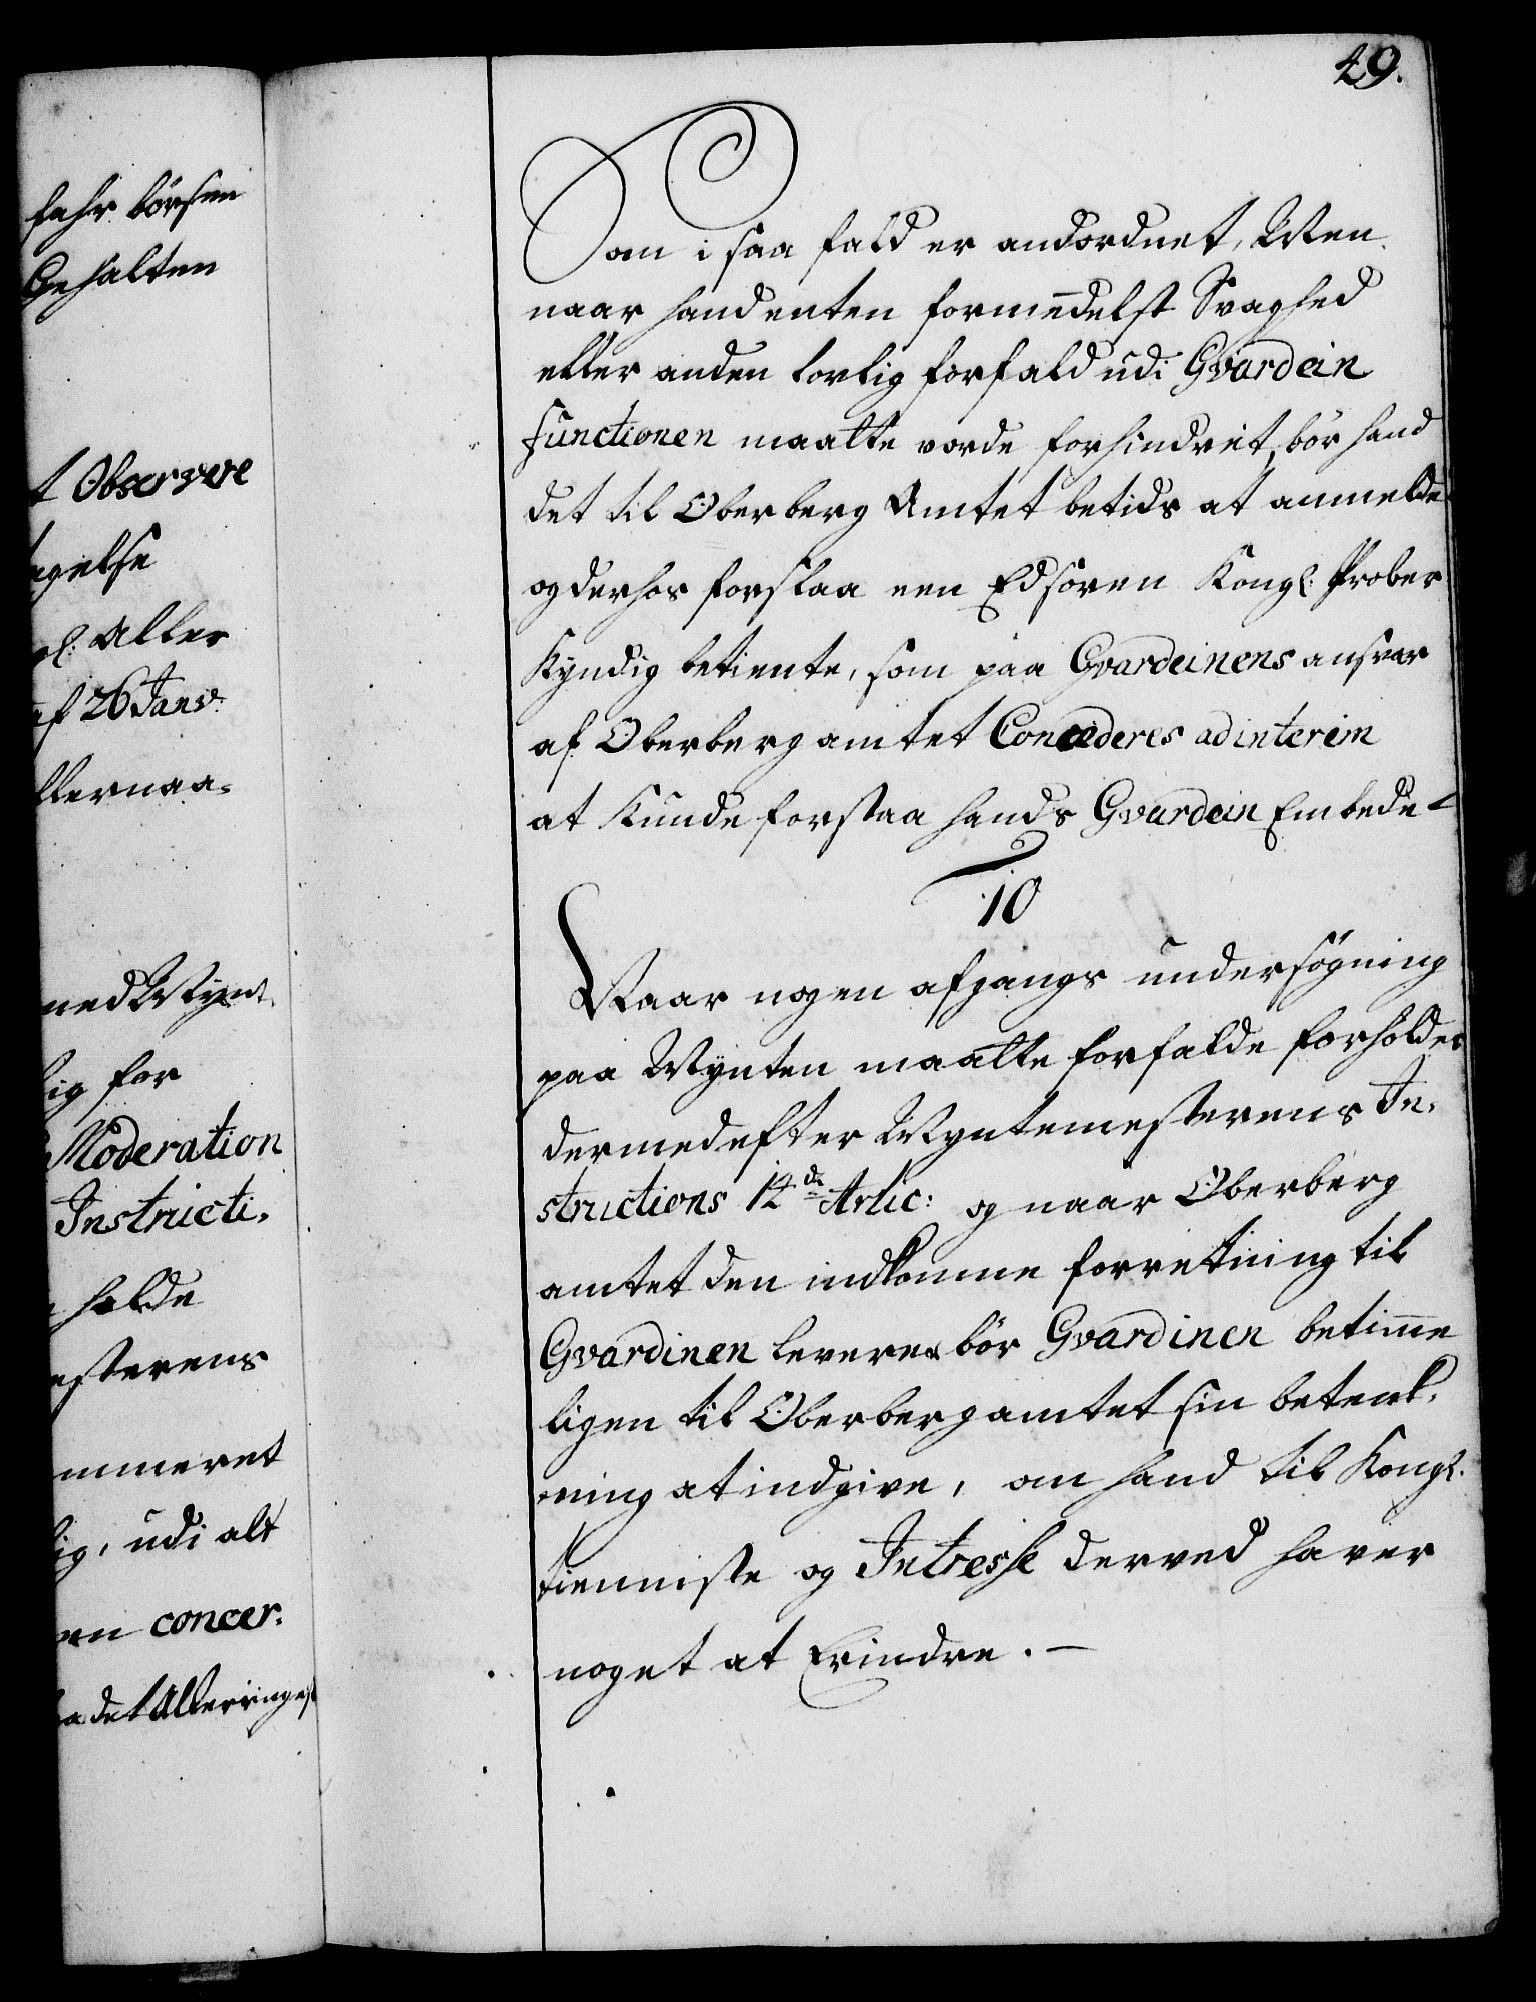 fahr börsen
Gehalten
t Observere
agelse
gl: Aller
af 26 Janv:
llernaa-
med Mynt.
lig for
Moderation
Instructi-
holde
esterens
mmeret
lig, udi alt
en concer-
a det Alleringest
49.
Som i saa fald er andordnet, Men
naar hand enten formedelst Svaghed
eller anden lovlig forfald udi Gvardein
functionen maatte vorde forhindret, bör hand
det til Oberberg Amtet betids at anmelde
og derhos forslaa een Edsoren Kongl: Prober
Kyndig betiente, som paa Gvardeinens ansvar
af Oberbergamtet Concederes ad interim
at Kunde forstaa hands Gvardein Embede
10
Naar nogen afgangs undersögning
paa Mynten maatte forfalde forholdes
dermed efter Myntemesterens In-
structions 12de Artic: og naar Oberberg
amtet den indkomne forretning til
Gvardinen leverer bör Gvardinen betimme
ligen til Oberbergamtet sin betenk-
ning at indgive, om hand til Kongl.
tienniste og Intresse derved haver
noget at Erindre. —